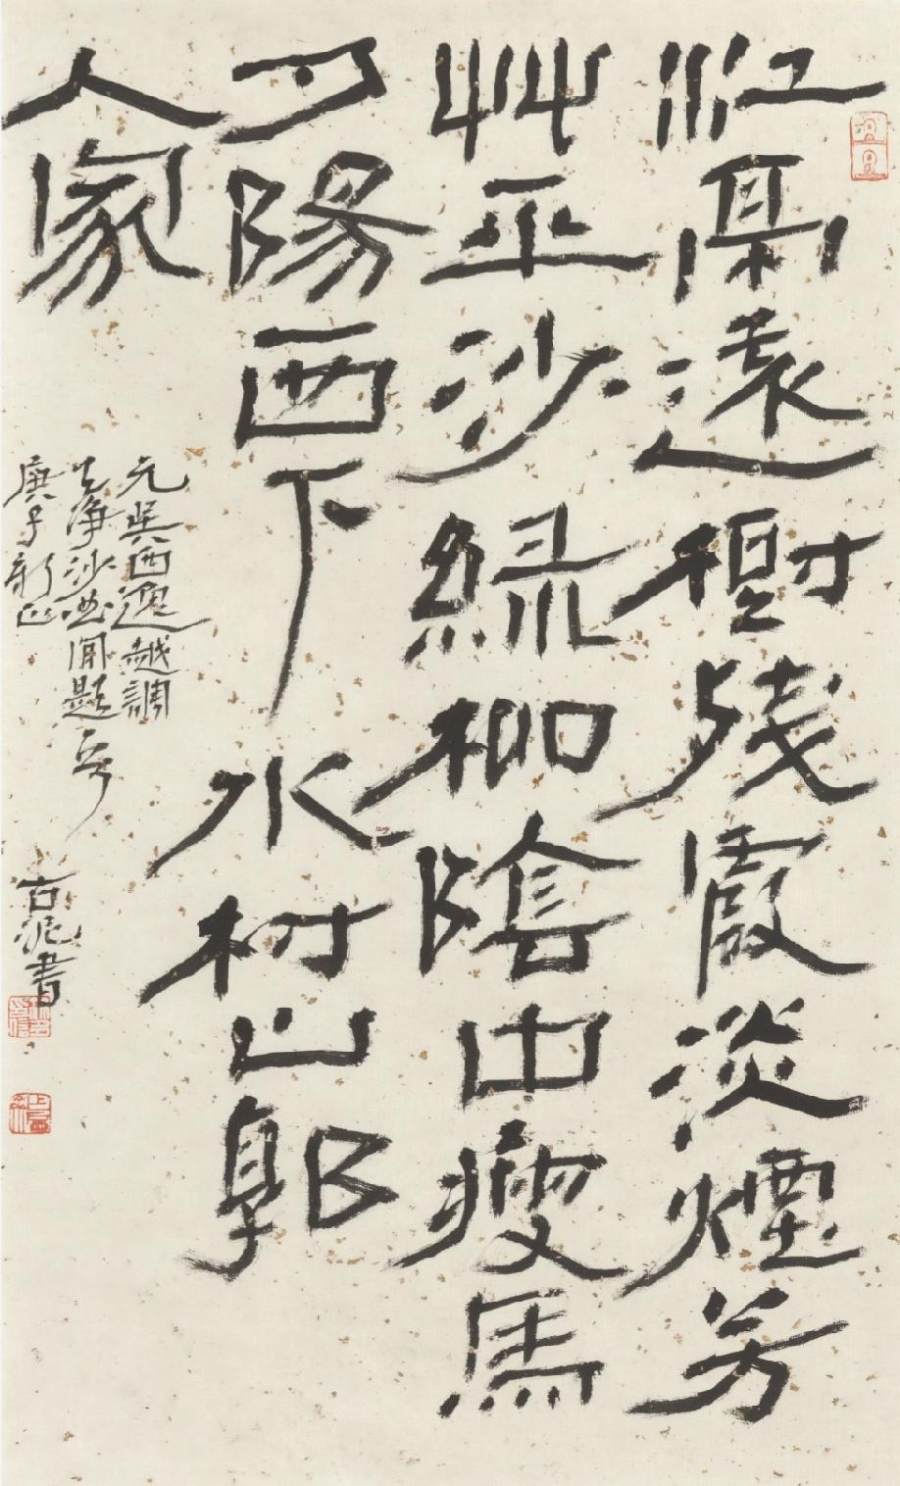 江亭遠樹殘霞淡煙芳
艸平沙綠柳陰中瘦馬
夕陽西下水村山郭
人家
元吳西逸越調
天淨沙曲閒題
庚子新正
古泥書